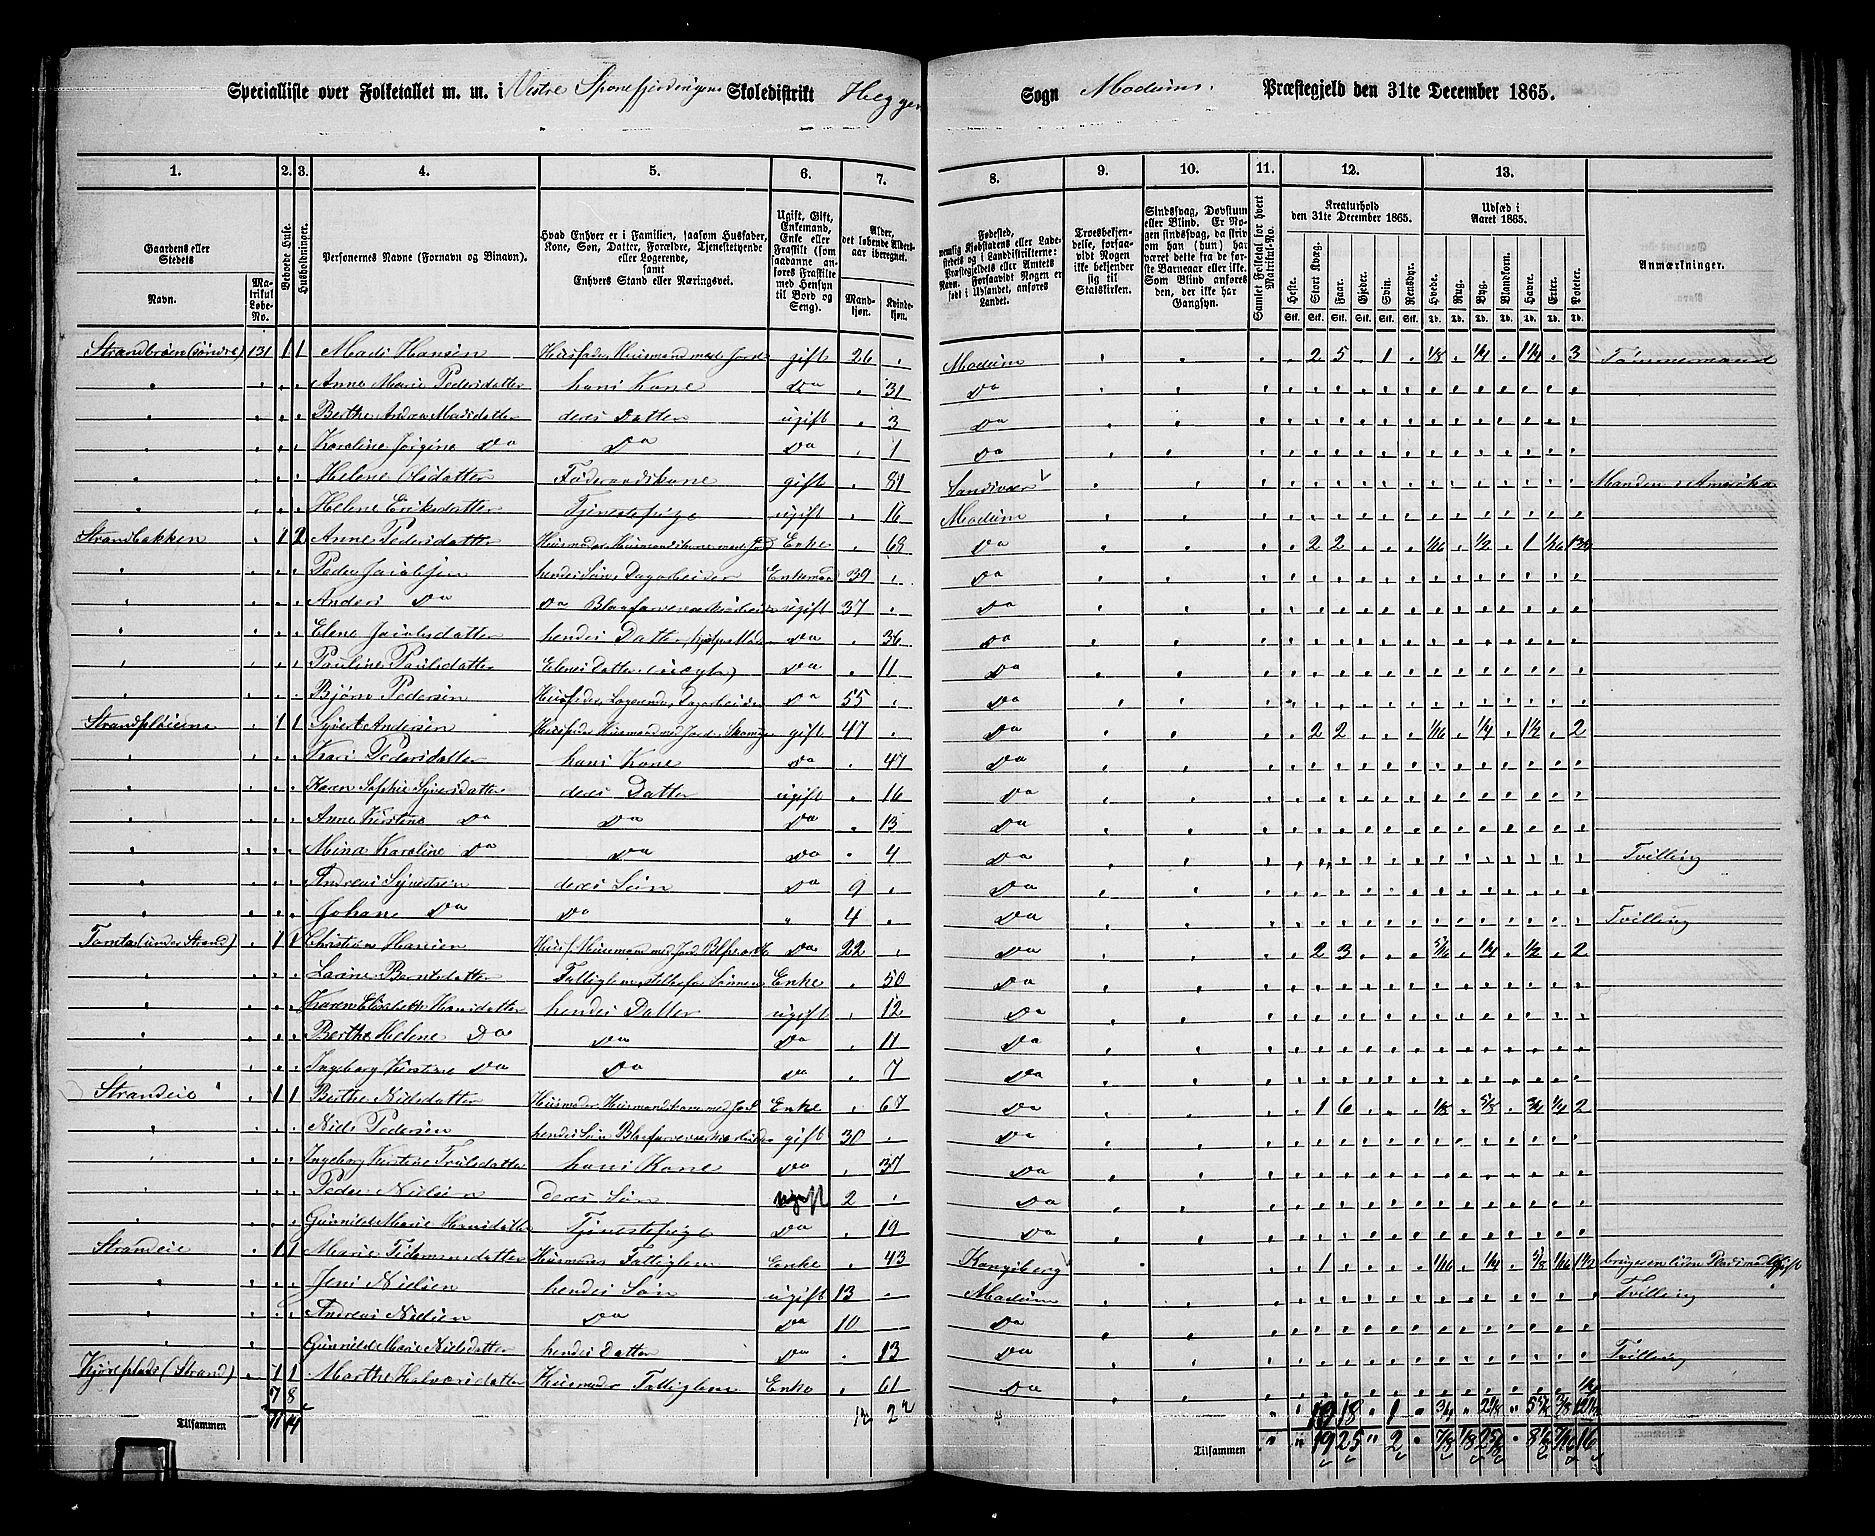 Specialliste over Folketallet m. m. i Vestre Sponefjerdingens Skoledistrikt Heggen Sogn Modums Præstegjeld den 31te December 1865.
1. 2. 3. 4. 5. 6. 7. 8. 9. 10. 11. 12. 13.
Gaardens eller Stedets Navn.
Matrikul Løbe-No.
Beboede Huse.
Husholdninger.
Personernes Navne (Fornavn og Binavn).
Hvad Enhver er i Familien, saasom Husfader, Kone, Søn, Datter, Forældre, Tjenestetyende eller Logerende, samt Enhvers Stand eller Næringsvei.
Ugift, Gift, Enkemand, Enke eller Fraskilt (som saadanne anføres Fraskilte med Hensyn til Bord og Seng).
Alder, det løbende Aldersaar iberegnet.
Mandkjøn. Kvindekjøn.
Fødested,
Troesbekjendelse, forsaavidt Nogen ikke bekjender sig til Statskirken.
Sindssvag, Døvstum eller Blind. Er Nogen sindssvag, da skrives om han (hun) har været dette fra de første Barneaar eller ikke. Som Blind anføres den, der ikke har Gangsyn.
Samlet Folketal for hvert Matrikul-No.
Kreaturhold den 31te December 1865.
Heste. Stort Kvæg. Faar. Gjeder. Svin. Rensdyr.
Udsæd i Aaret 1865.
Hvede. Rug. Byg. Blandkorn. Havre. Erter. Poteter.
Anmærkninger.
Strandbråten (søndre) 131 1 1 Mads Hansen Husfader Huusmand med Jord gift 26 Modum 2 5 1 1/8 1/4 1 1/4 3 Tømmermand
Anne Marie Pedersdatter hans Kone Do 31 Do
Berthe Andrea Madsdatter deres Datter ugift 3 Do
Karoline Jørgine Do Do Do 1 Do
Helene Olsdatter Føderaadskone gift 81 Sandsvær Manden i Amerika
Helene Eriksdatter Tjenestepige ugift 16 Modum
Strandbakken 1 2 Anne Pedersdatter Enke 68 Do 2 2 1/16 1/2 1 1/16
Peder Jacobsen hendes Søn, Dagarbeider Enkemand 39 Do
Anders Do Do Blaafarveværksarbeider ugift 37 Do
Elene Jacobsdatter hendes Datter Do 36 Do
Pauline Paulsdatter Elenes Datter (uægte) Do 11 Do
Bjørn Pedersen Husfader, Logerende, Dagarbeider Do 55 Do
1 1 Syvert Andersen Husfader Huusmand med Jord gift 47 Do 2 2 1/16 1/4 1 1/2 2
Kari Pedersdatter hans Kone Do 47 Do
Karen Sophie Syversdatter deres Datter ugift 16 Do
Anne Kirstine Do Do Do 13 Do
Mina Karoline Do Do Do 4 Do Tvilling
Andreas Syvertsen deres Søn Do 9 Do
Johan Do Do 4 Do Tvilling
Tomta (under Strand) 1 1 Christian Hansen Husf. Huusmand med Jord Do 22 Do 2 3 5/16 1/4 1/2 2
Larine Berntsdatter Enke 50 Do
Karen Elisabeth Hansdatter hendes Datter ugift 12 Do
Berthe Helene Do Do Do 11 Do
Ingeborg Kirstine Do Do Do 7 Do
Strandeie 1 1 Berthe Nilsdatter Husmoder Enke 67 Do 1 6 1/8 5/8 3/4 1/4 2
Niels Pedersen hendes Søn Blaafarveværksarbeider gift 30 Do
Ingeborg Kirstine Trulsdatter hans Kone Do 37 Do
Peder Nielsen deres Søn ugift 2 Do
Gunnilde Marie Hansdatter Tjenestepige Do 19 Do
Strandeie 1 1 Marie Husmoder Fattiglem Enke 43 Kongsberg 1 1/16 1/4 5/8 1/16 1 1/2 bruger en liden Plads
Jens Nielsen hendes Søn ugift 13 Modum Tvilling
Andreas Nielsen Do Do 10 Do
Gunnilde Marie Nielsdatter hendes Datter Do 13 Do Tvilling
Kjøreplads (Strand) 1 1 Marthe Halvorsdatter Husmoder Fattiglem Enke 61 Do 1/4
7 8
Tilsammen 11 14 12 22
10 18 1 3/4
Tilsammen 19 25 2 7/8 1/8 2 5/8 8 1/8 7/16 16